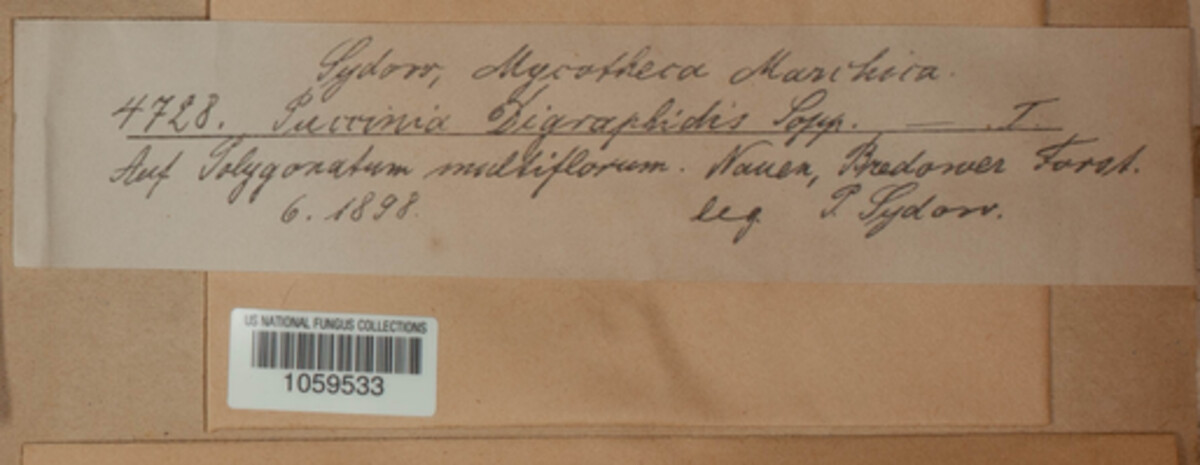 Sydow, Mycotheca Marchica.
4728. Puccinia Digraphidis Sopp. — I.
Auf Polygonatum multiflorum. Nauen, Bredower Forst.
6. 1898. leg. P. Sydow.
US NATIONAL FUNGUS COLLECTIONS
1059533